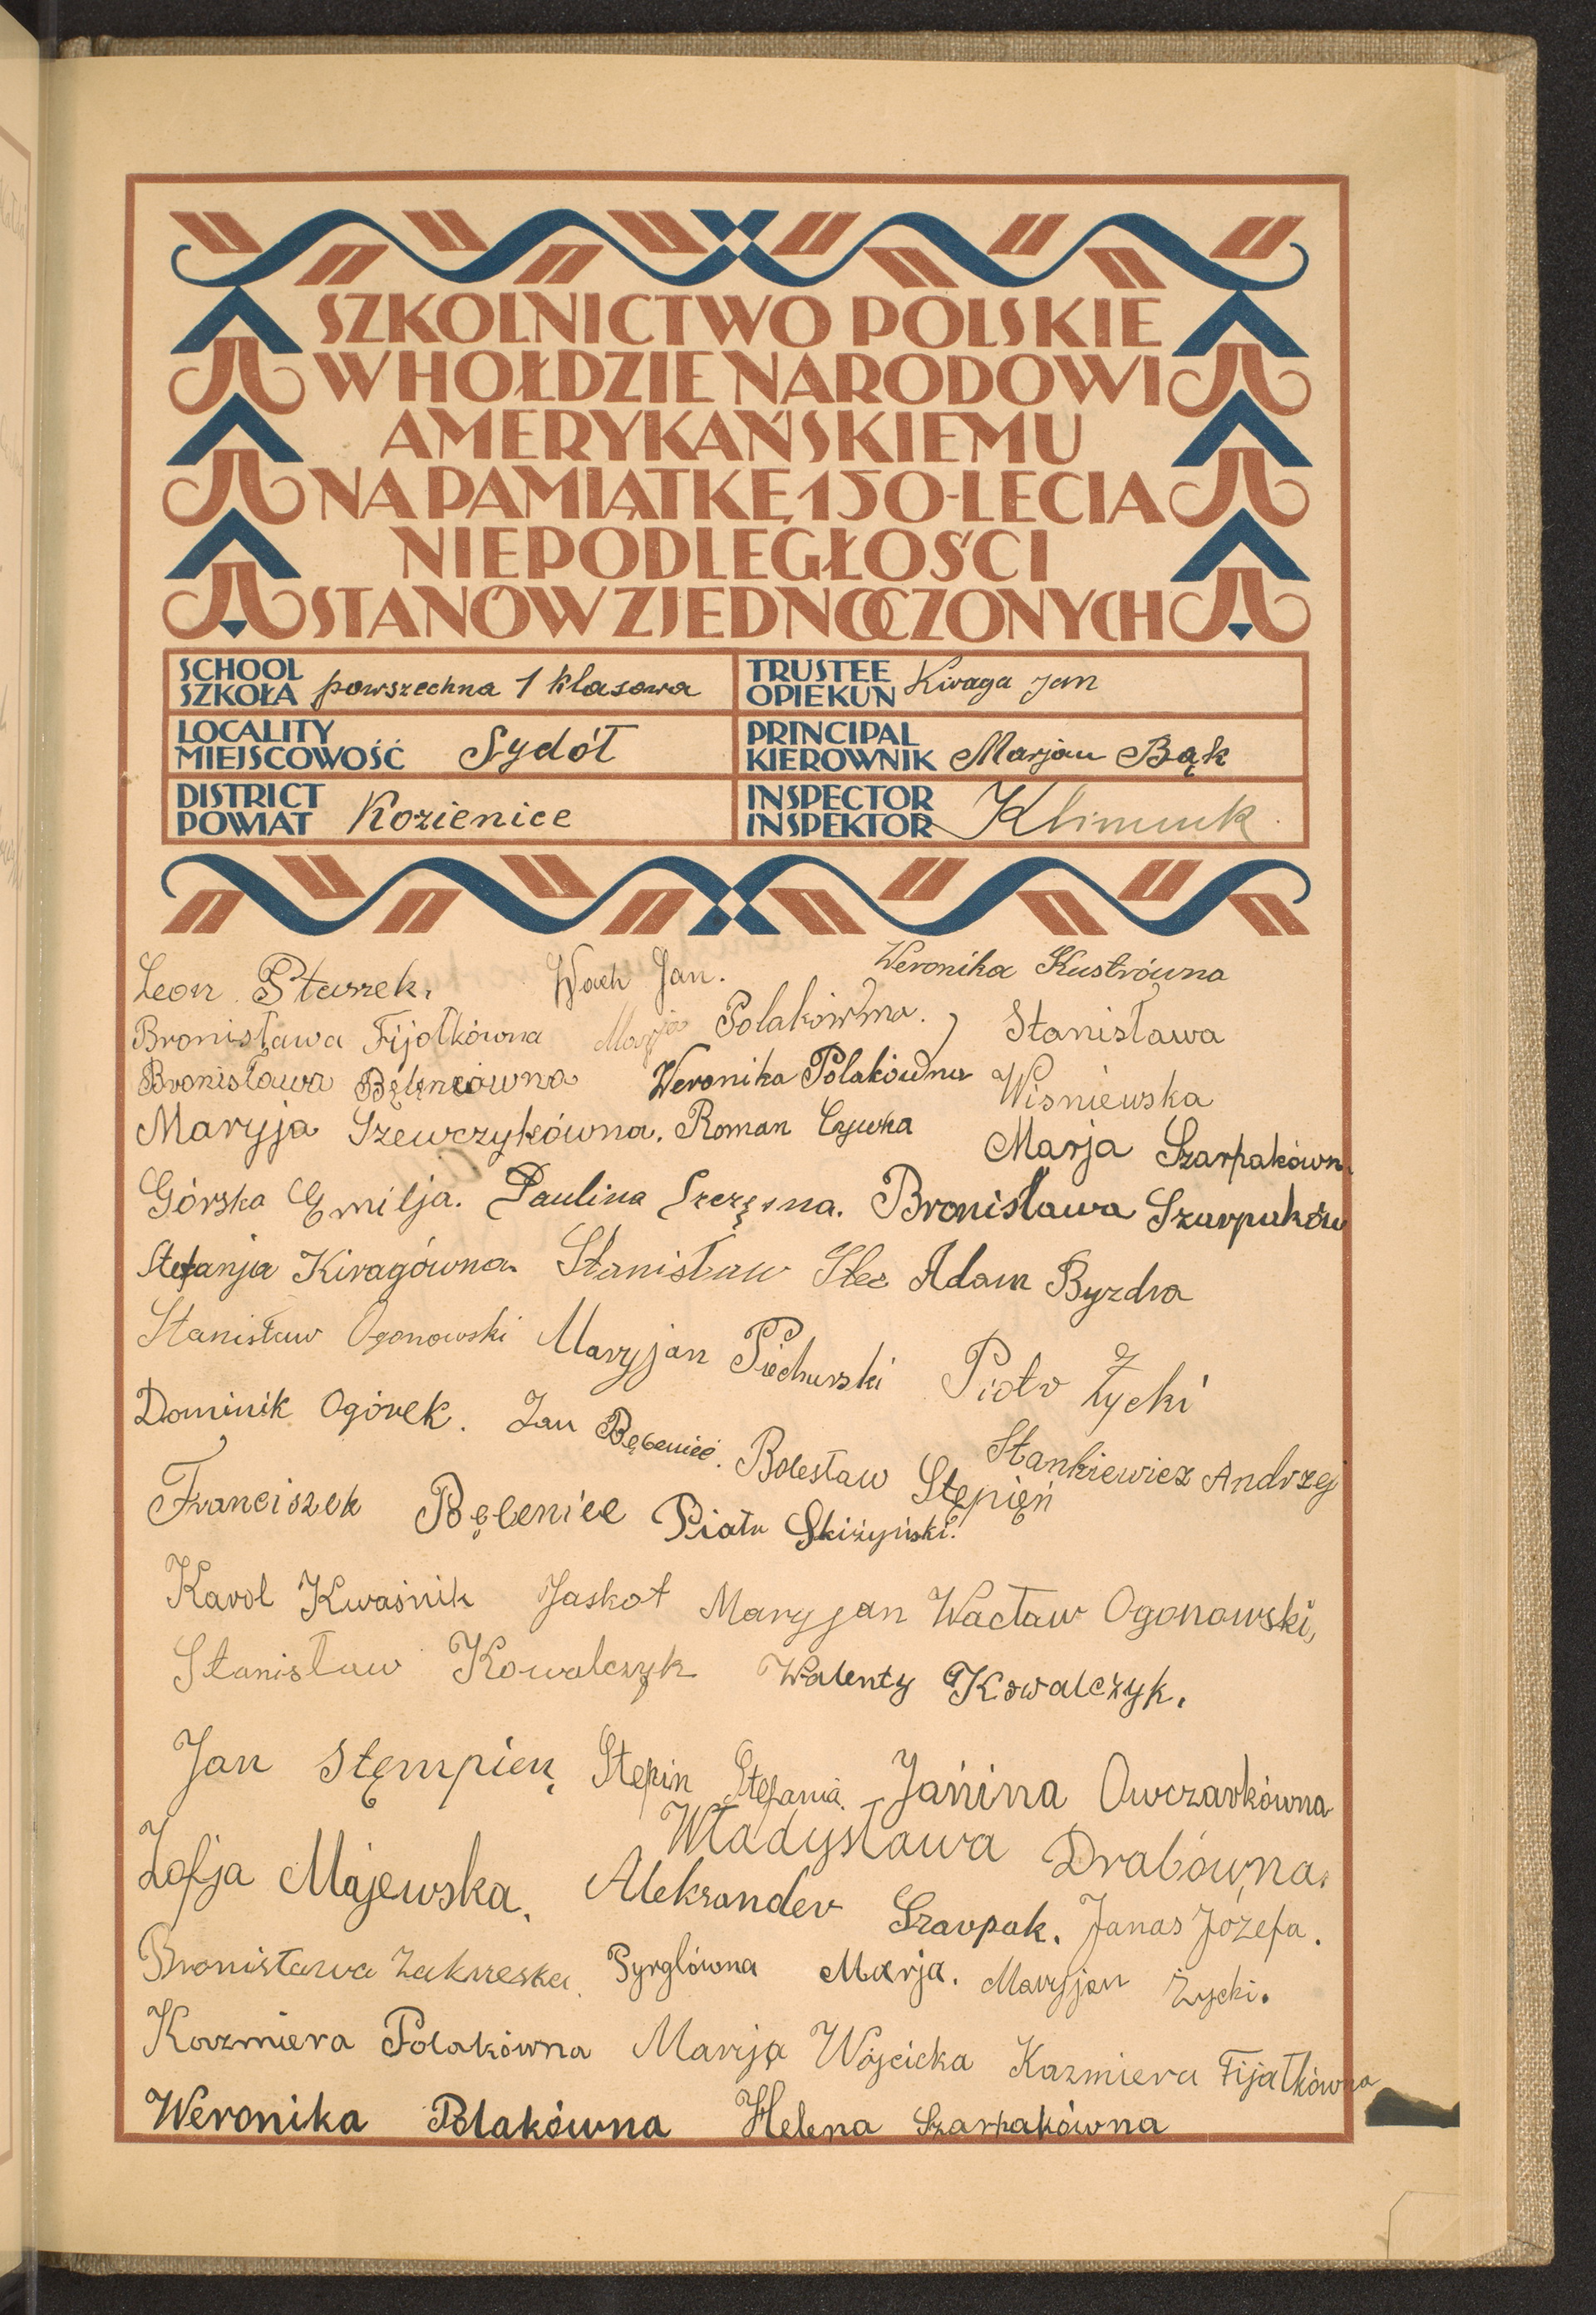 SZKOLNICTWO POLSKIE
W HOŁDZIE NARODOWI
AMERYKAŃSKIEMU
NA PAMIĄTKĘ 150-LECIA
NIEPODLEGŁOŚCI
STANÓW ZJEDNOCZONYCH
SCHOOL
SZKOŁA powszechna 1 klasowa
TRUSTEE
OPIEKUN Kiraga Jan
LOCALITY
MIEJSCOWOŚĆ Sydół
PRINCIPAL
KIEROWNIK Marjan Bąk
DISTRICT
POWIAT Kozienice
INSPECTOR
INSPEKTOR Klimuk
Leon Ptaszek. Wach Jan. Weronika Kustrówna
Bronisława Fijołkówna Marja Polakówna. Stanisława
Bronisława Weronika Polakówna Wisniewska
Maryja Szewczykówna. Roman Czywka Marja Szarpakówn.
Górska Emilja. Paulina Szczęsna. Bronisława Szarpaków
Stefanja Kiragówna. Stanisław Stec Adam Byzdra
Stanisław Ogonowski Maryjan Piechurski Piotr Życki
Dominik Ogórek. Jan Bębeniec. Bolesław Stępień Stankiewicz Andrzej
Franciszek Bębeniec Piotr Skiżyński.
Karol Kwaśnik Jaskot Maryjan Wacław Ogonowski,
Stanisław Kowalczyk Walenty Kowalczyk.
Jan Stępmpień Stepin Stefania. Janina Owczarkówna
Władysława Drabówna.
Zofja Majewska. Aleksander Szarpak. Janas Józefa.
Bronisława Zakrzeska. Pyrglówna Marja. Maryjan Życki.
Kazmiera Polakówna Maryja Wójcicka Kazmiera Fijałkówna
Weronika Polakówna Helena Szarpakówna